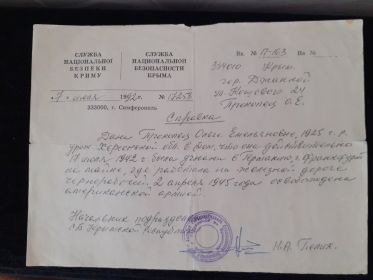 СЛУЖБА НАЦИОНАЛЬНОЇ БЕЗПЕКИ КРИМУ
СЛУЖБА НАЦИОНАЛЬНОЙ БЕЗОПАСНОСТИ КРЫМА
Вх. № П-103 На №
334010 Крым.
гор. Джанкой
ул. Кошевого 24
Прокопец О.Е.
7 июля 1992 г. №
333000, г. Симферополь
Справка
Дана Прокопец Ольге Емельяновне, 1925 г.р.
урож. Херсонской обл. в том, что она действительно
17 июля 1942 г. была угнана в Германию, г. Франкфурт
на Майне, где работала на железной дороге
чернорабочей. 2 апреля 1945 года освобождена
американской армией.
Начальник подразделения
СБ Крымской республики
Н.А.